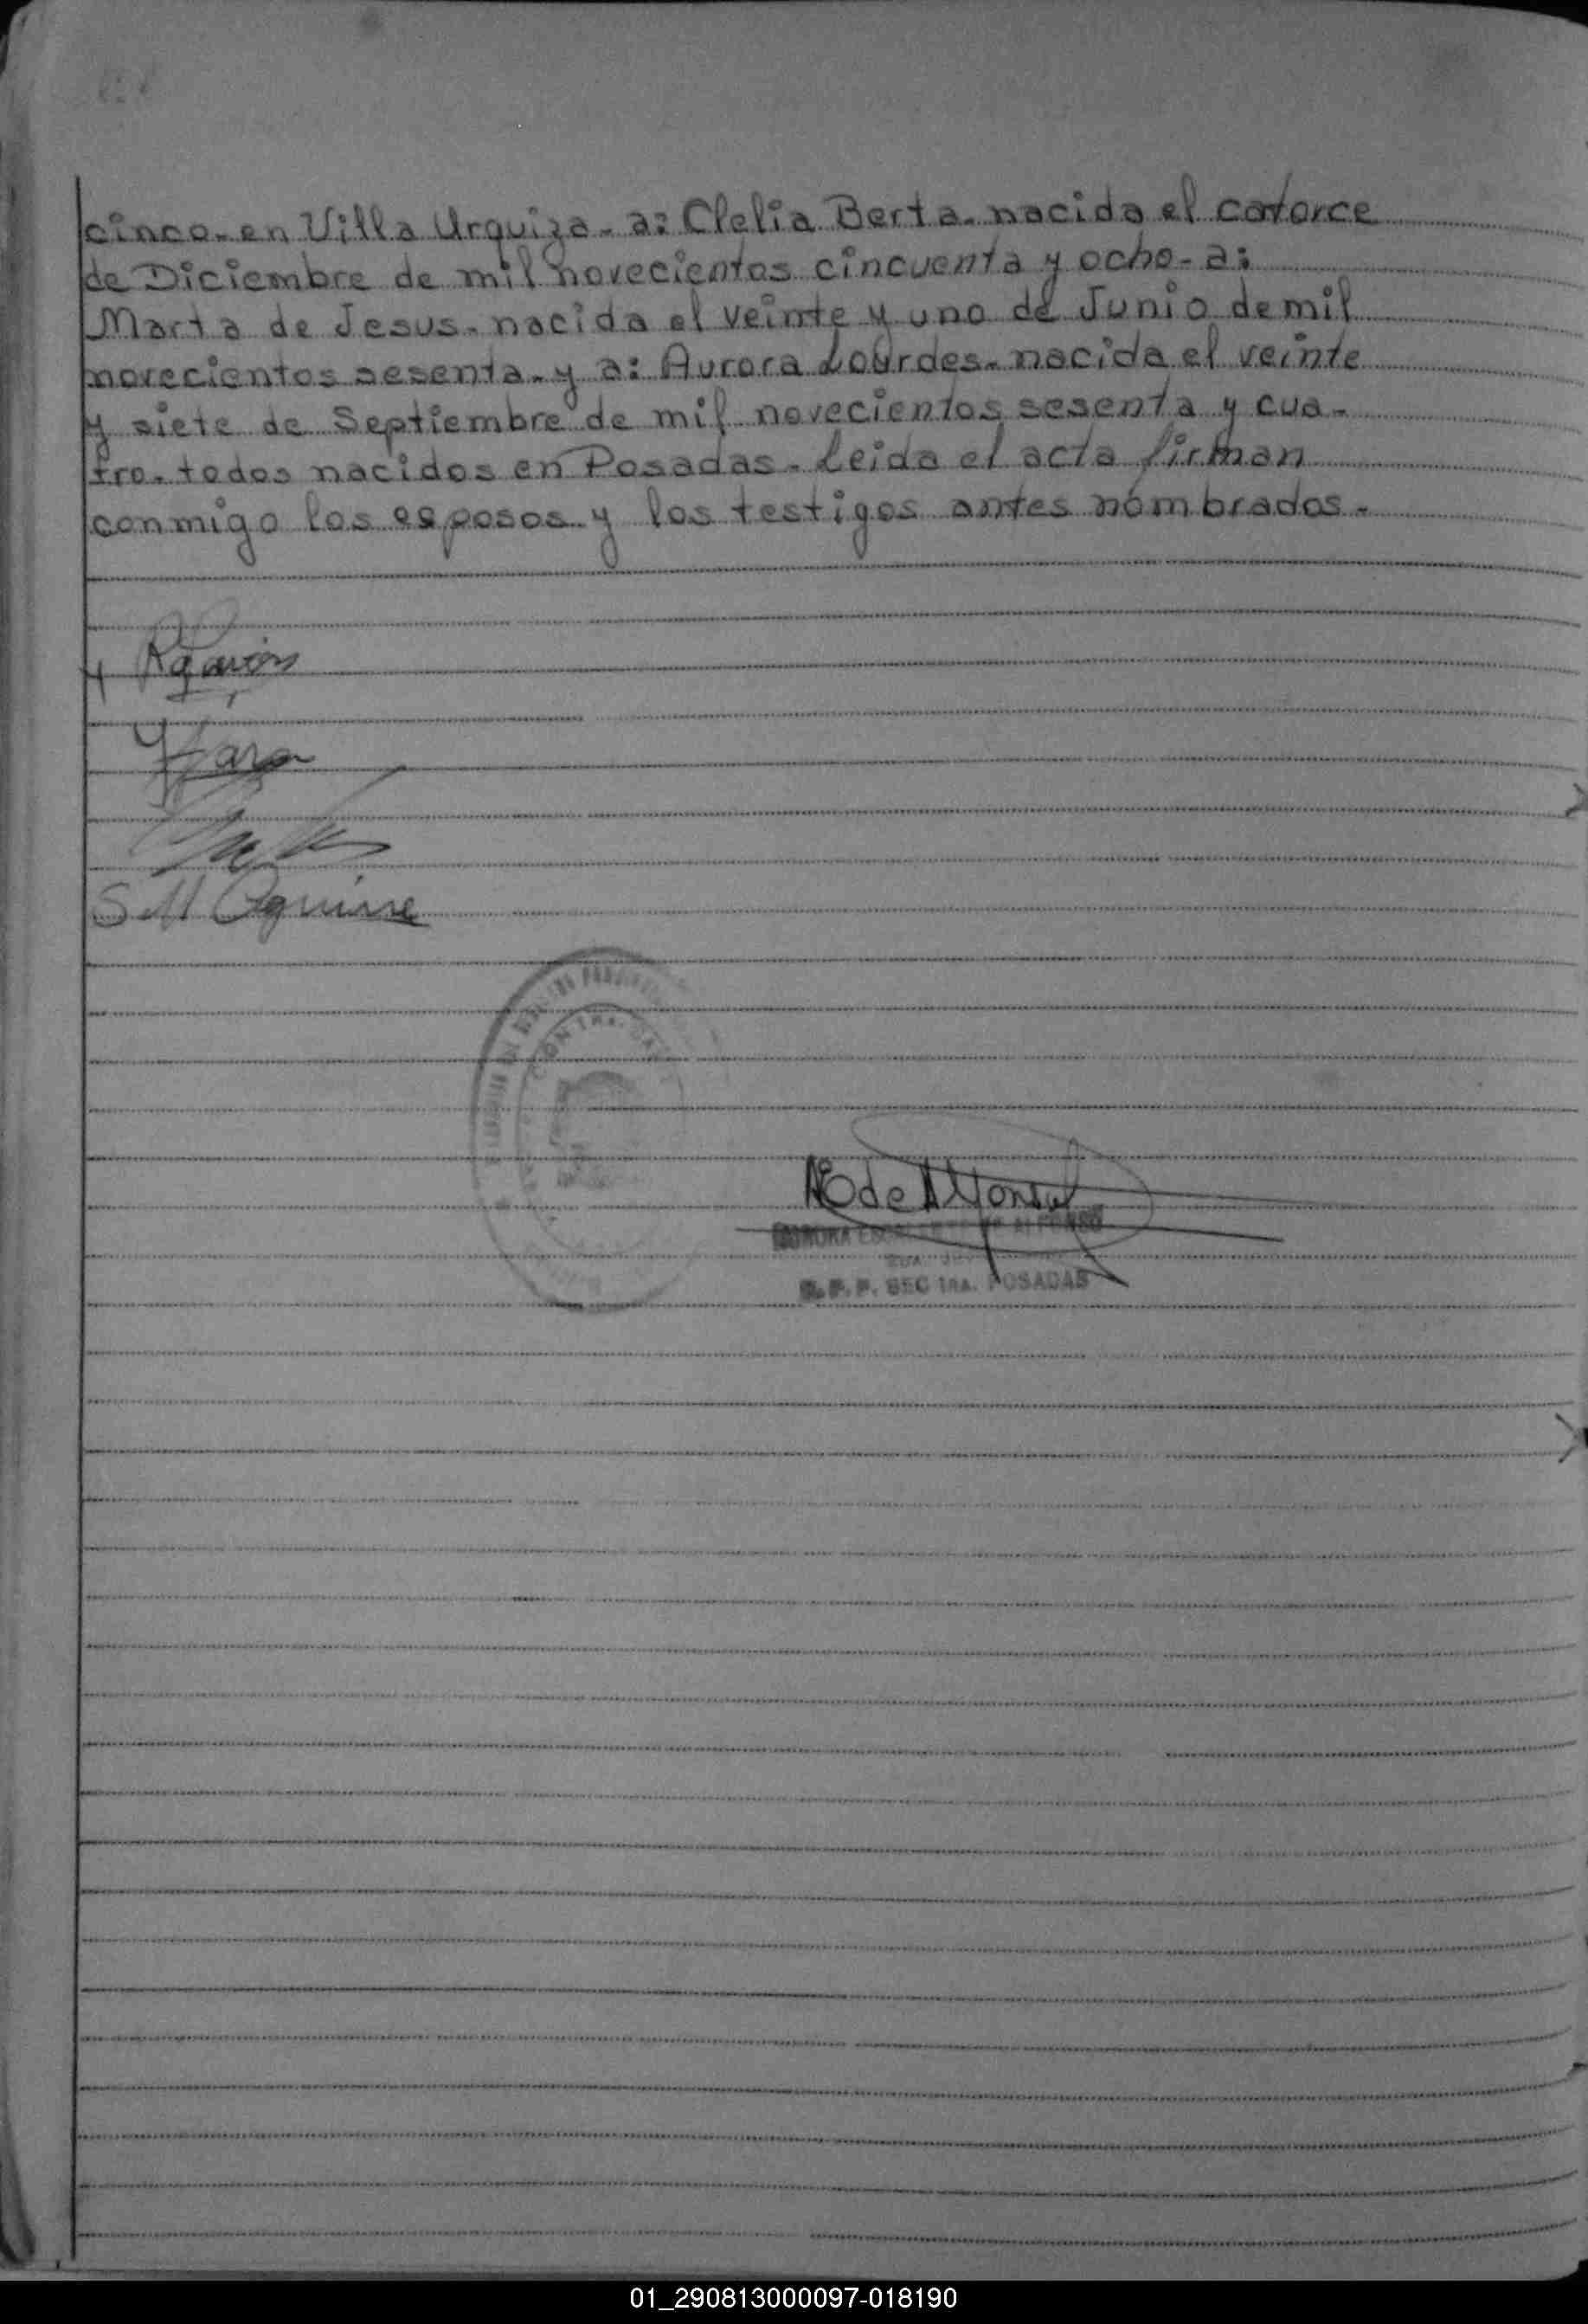 cinco-en Villa Urquiza- a: Clelia Berta- nacida el catorce
de Diciembre de mil novecientos cincuenta y ocho- a:
Marta de Jesus- nacida el veinte y uno de Junio de mil
novecientos sesenta- y a: Aurora Lourdes- nacida el veinte
y siete de Septiembre de mil novecientos sesenta y cua-
tro- todos nacidos en Posadas- Leida el acta firman
conmigo los esposos y los testigos antes nombrados-
S M Aguirre
de Alfonso
DE ALFONSO
R.P.P. SEC 1RA. POSADAS
01_290813000097-018190